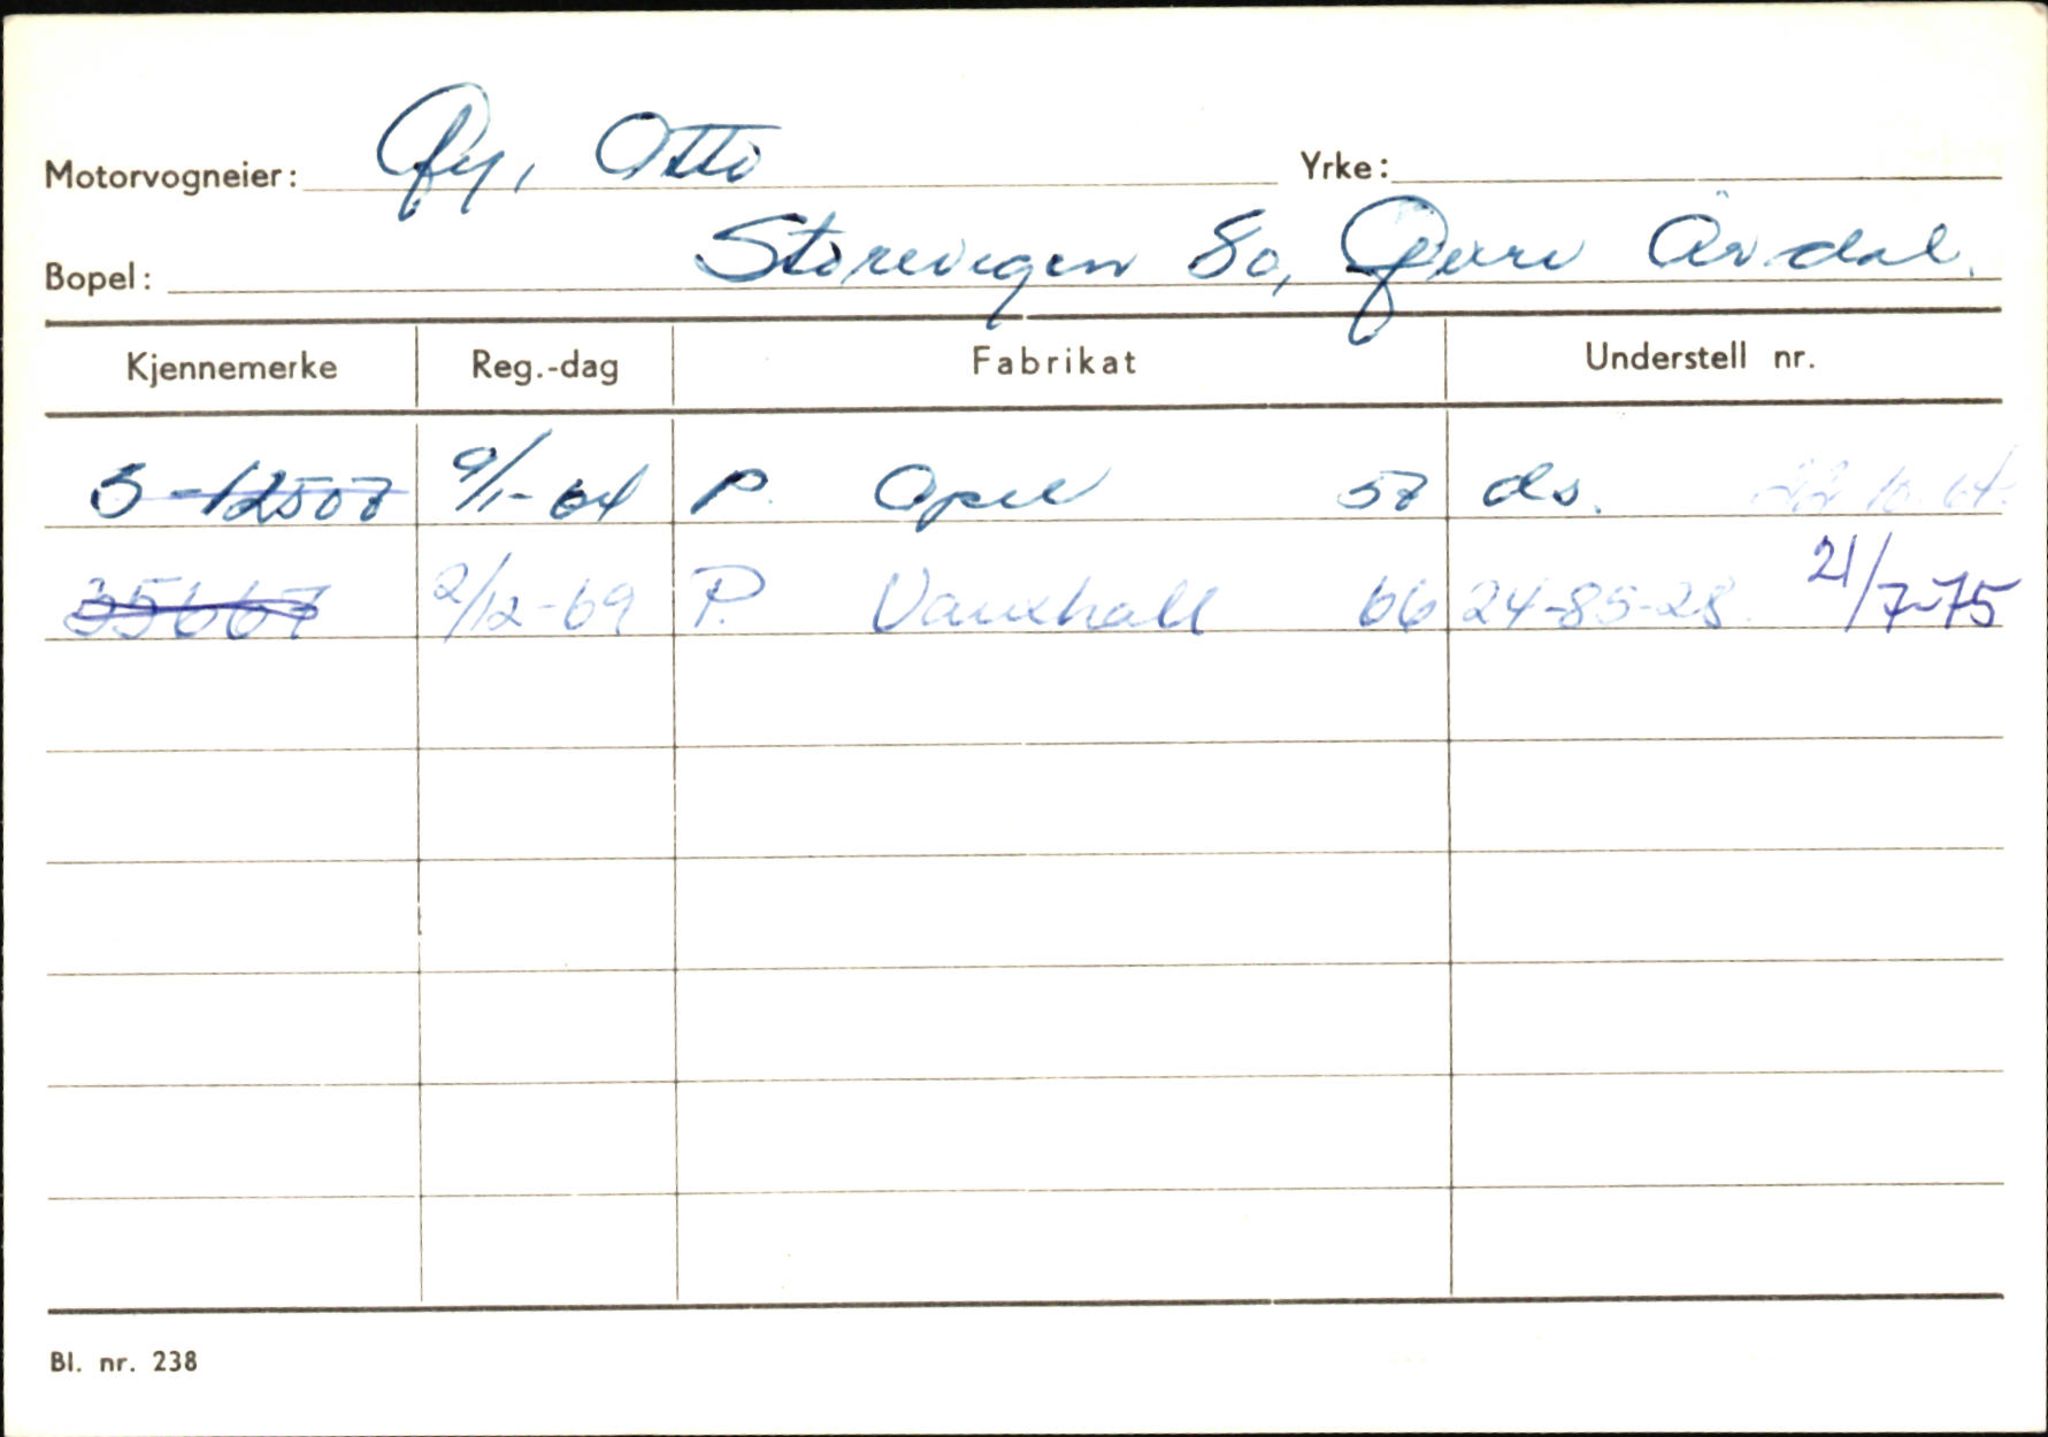 Motorvogneier: Øy, Otto Yrke:
Bopel: Storevegen 80, Øvre Årdal.
Kjennemerke Reg.-dag Fabrikat Understell nr.
S-12507 9/1-64 P. Opel 57 ds. 22 10 64.
35667 2/12-69 P. Vauxhall 66 24-85-28. 21/7-75
Bl. nr. 238